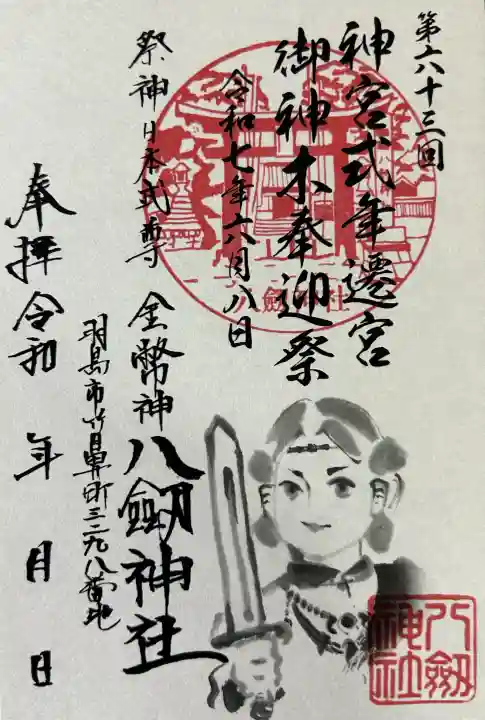 第六十三回
神宮式年遷宮
御神木奉迎祭
令和七年六月八日
八劔神社
祭神日本武尊
金幣神
八劔神社
羽島市竹鼻町三二九八番地
奉拝令和 年 月 日
八劔
神社